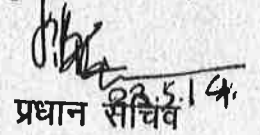 23.5.19.
प्रधान सचिव